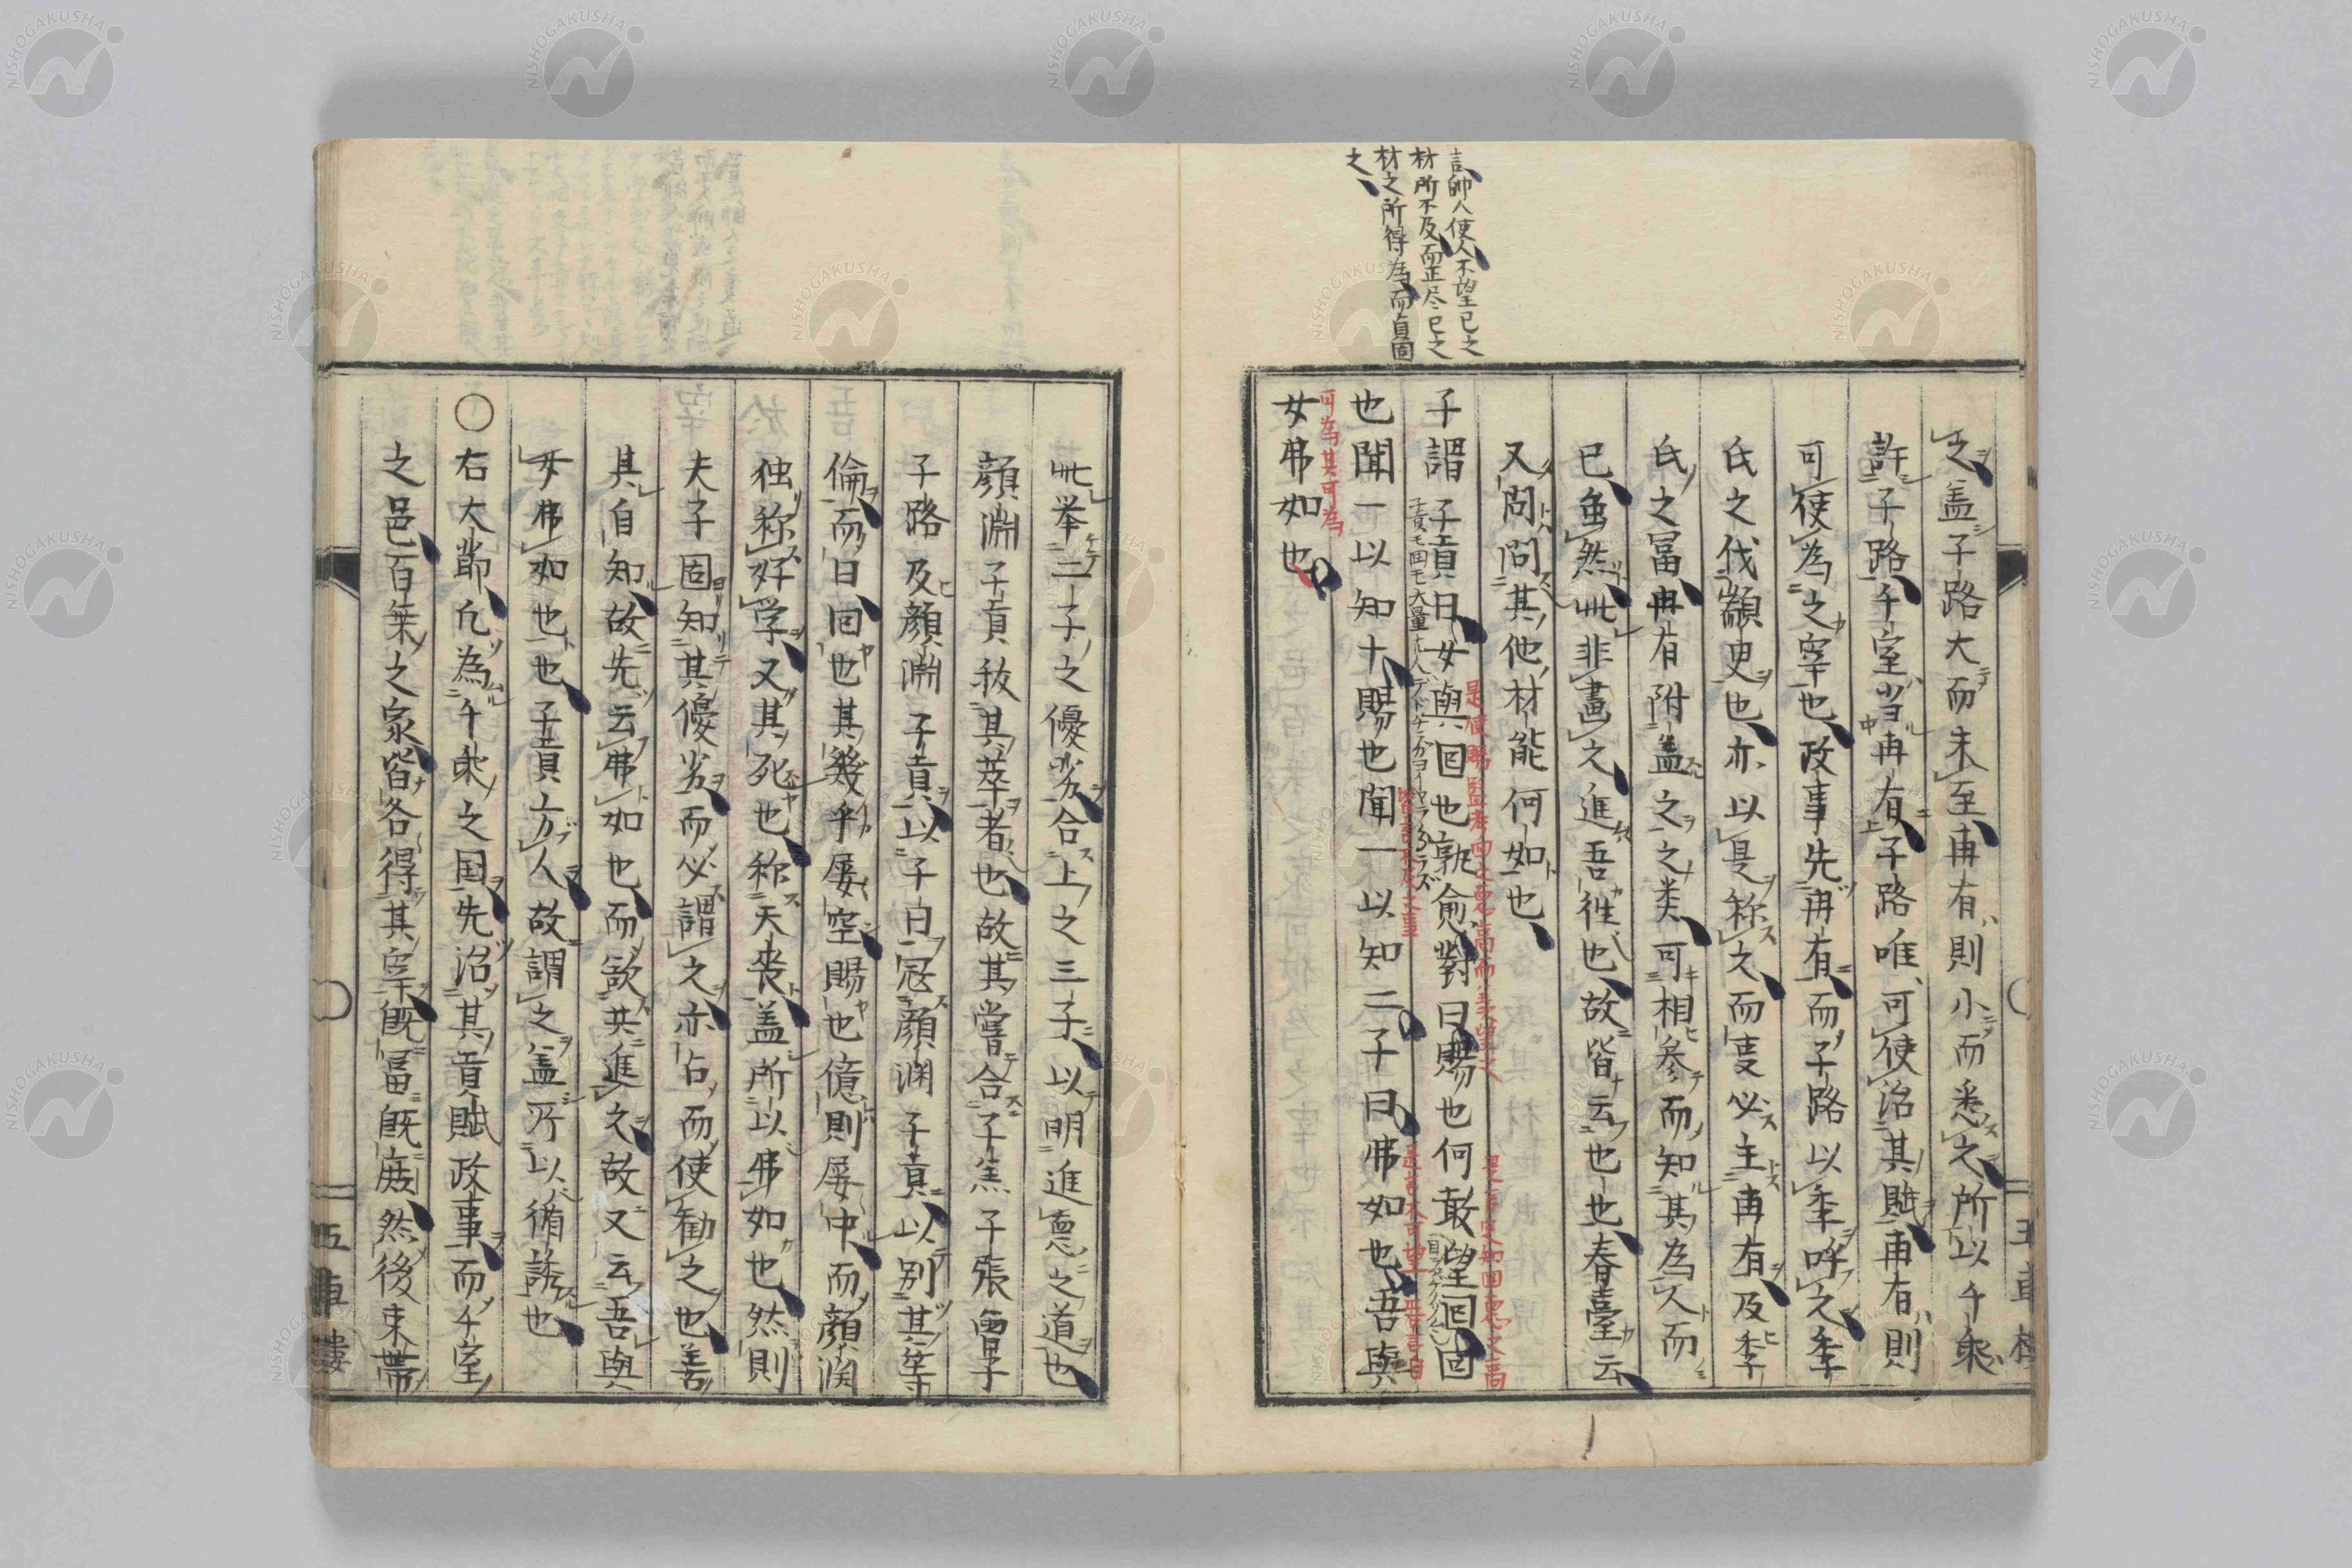 言帥人使人不望已之
材所不及而正尽已之
材之所得為而貞固
之
之盖子路大而未至冉有則小而悉之所以千乘
許子路千室当冉有子路唯可使治其賦冉有則
可使為之宰也政事先冉有而子路以季呼之季
氏之伐顓臾也亦以是称之而隻必主冉有及季
氏之冨冉有附盖之之類可相参而知其為人而
已虽然此非畫之進吾往也故皆云也也春臺云
又問問其他材能何如也
子謂子貢曰女與回也孰愈對曰賜也何敢望回回
是使賜監考回之悳高而美望之
是言安知回悳之高
也聞一以知十賜也聞一以知二子曰弗如也吾與
皆言不及之事
是言不可望
吾言自
可為其可為
女弗如也
此举二子之優劣合上之三子以明進悳之道也
顔淵子貢秡其萃者也故其嘗合子羔子張曽子
子路及顔淵子貢以子曰冠顔渊子貢以别其等
倫而曰回也其幾乎屡空賜也億則屡中而顔渕
独称好学又其死也称天喪盖所以弗如也然則
夫子固知其優劣而必謂之亦占而使勧之也善
其自知故先云弗如也而欲共進之故又云吾與
女弗如也也子貢方人故謂之盖所以循誘也
〇右大節凢為千乘之国先治其貢賦政事而千室
之邑百乗之家皆各得其宰既冨既庶然後束帯
五車樓